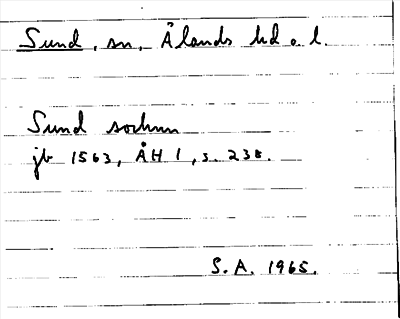 Sund, sn, Ålands hd o. l.
Sund sochnn
jb 1563, ÅH 1, s. 238.
S. A. 1965.